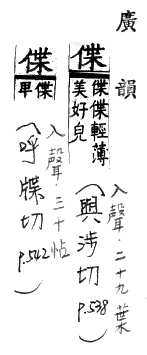 廣韻
偞 偞偞輕薄美好皃
(與涉切
入聲.二十九葉
p.538)
偞 偞卑
(呼牒切
入聲.三十帖
p.542)